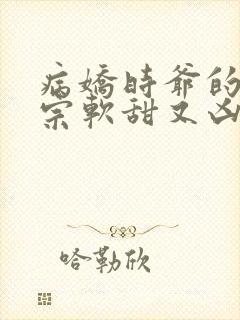 病嬌時爺的
宗軟甜又凶
哈勒欣